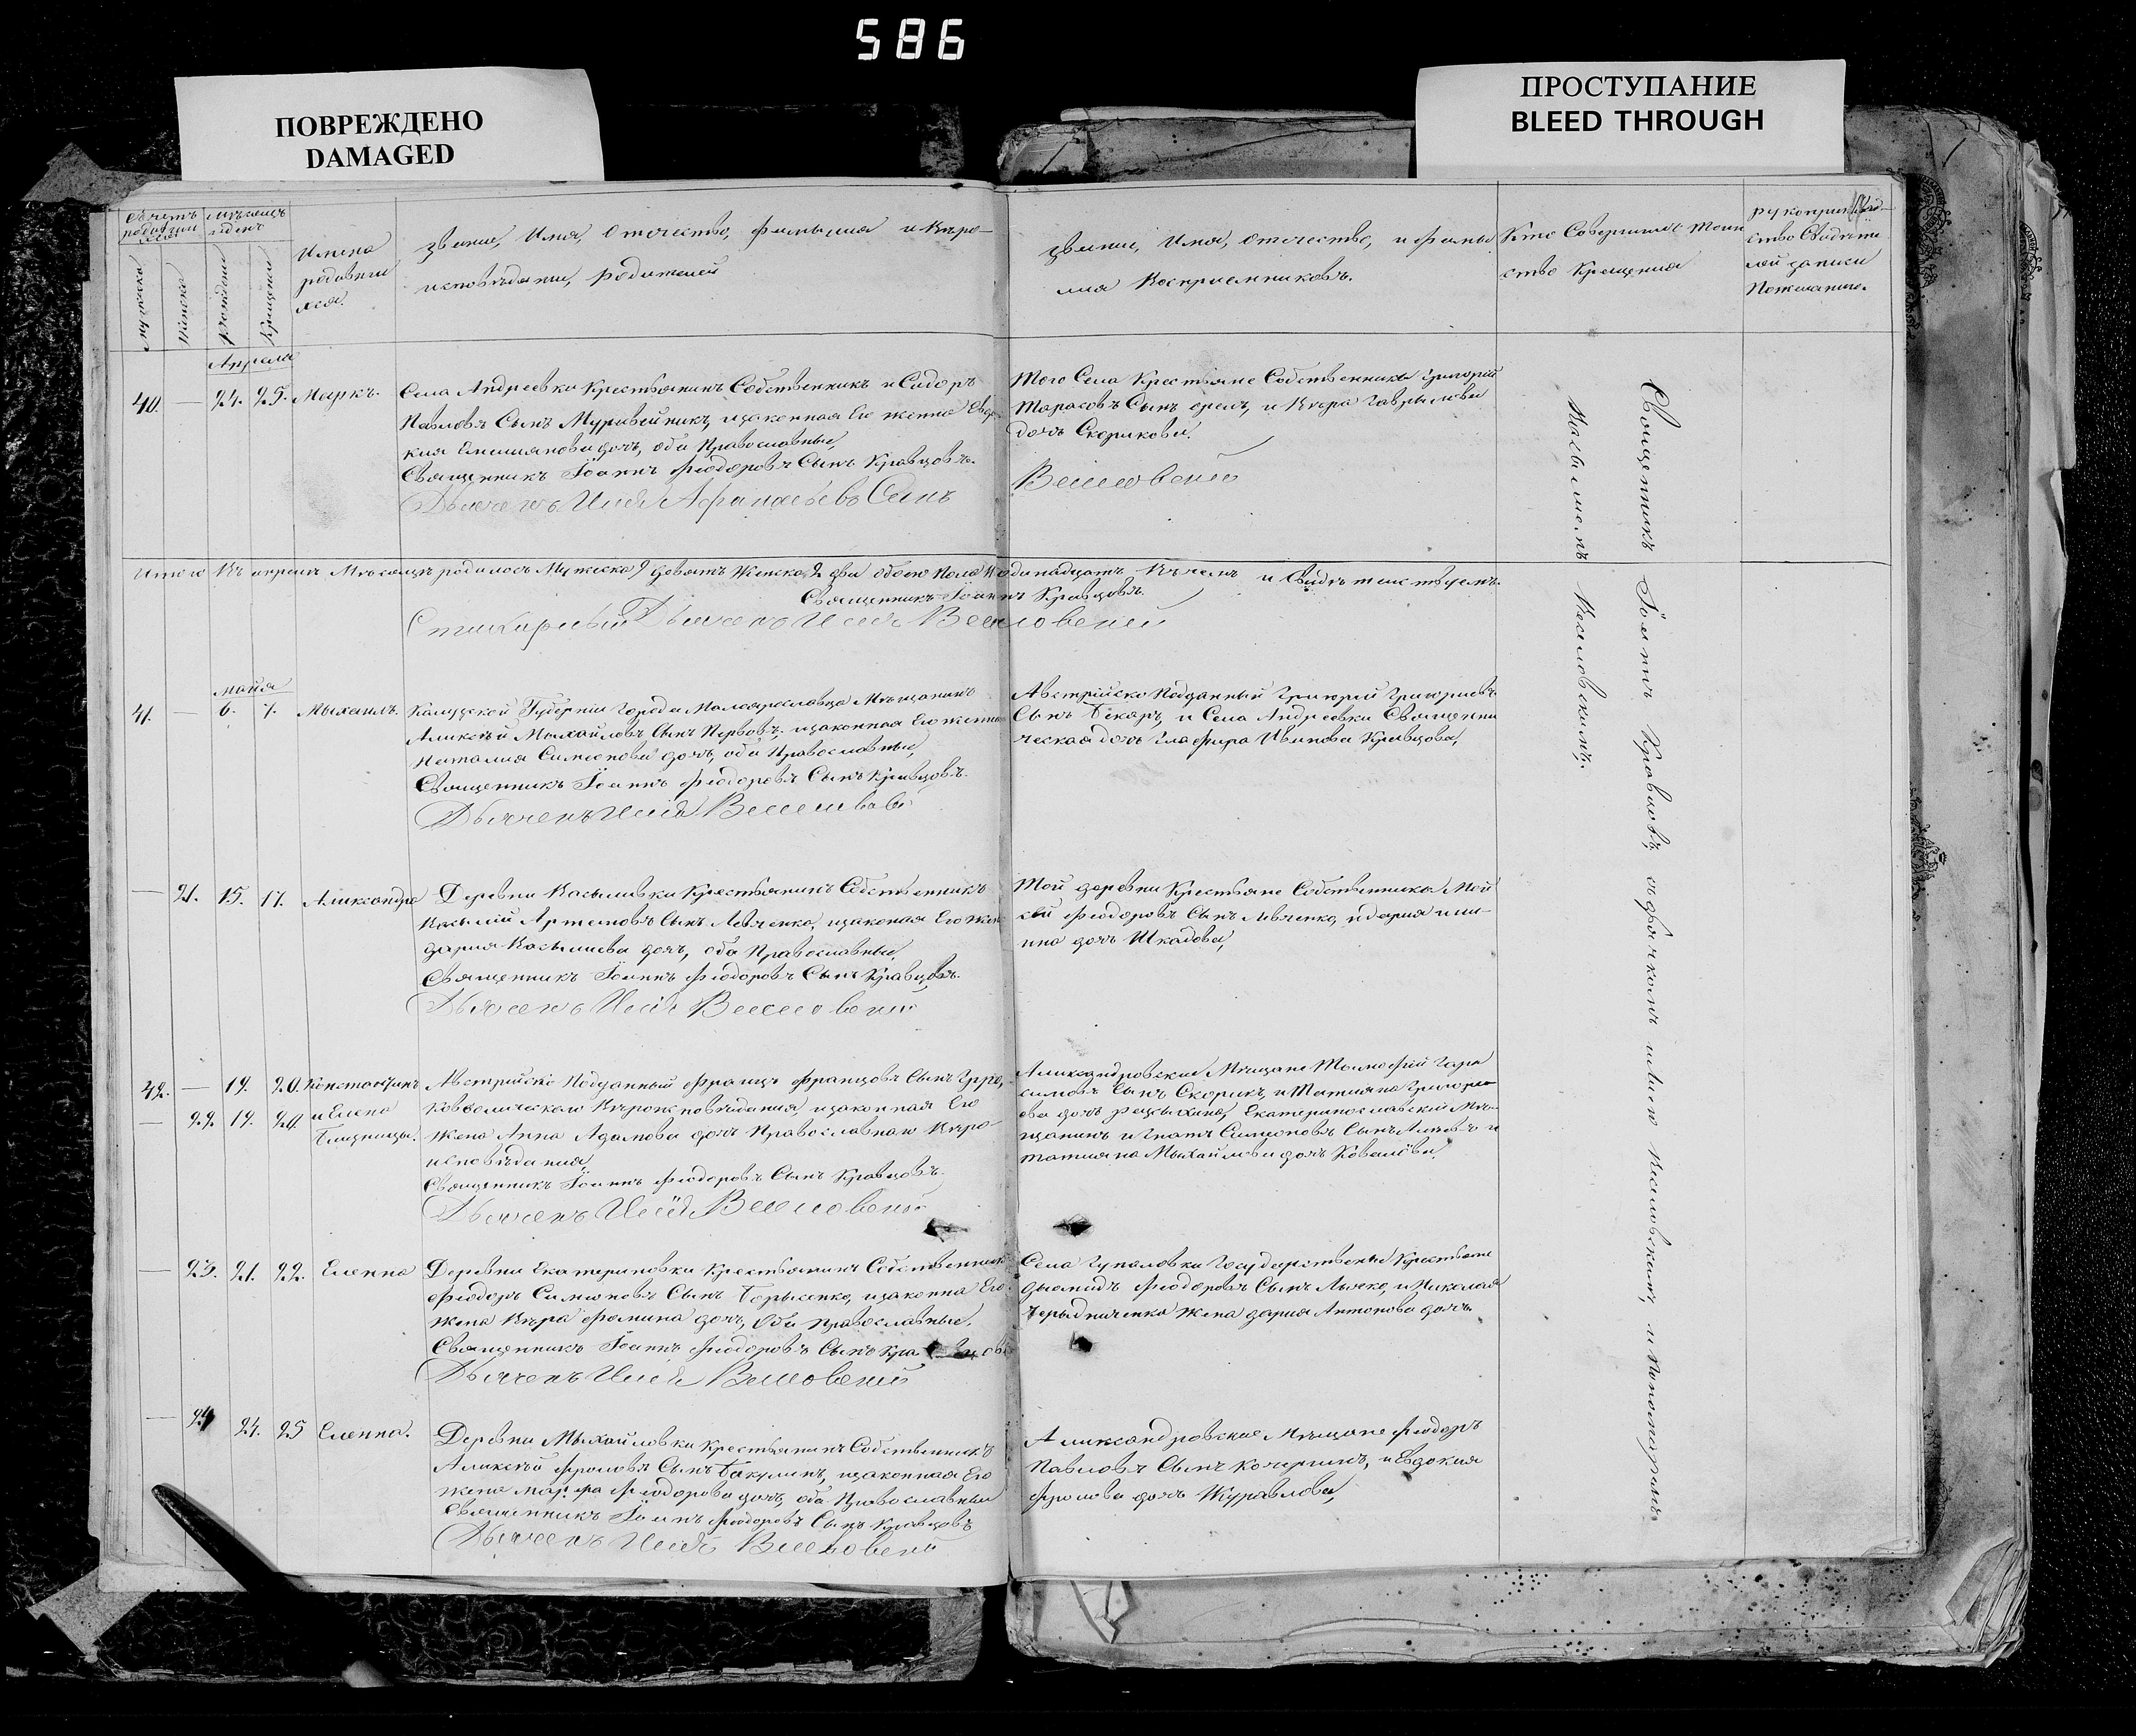 586
ПОВРЕЖДЕНО
DAMAGED
ПРОСТУПАНИЕ
BLEED THROUGH
Счетъ родившихся
Мѣсяцъ и день
мужска
женска
Рожденія
Крещенія
Имена
родившихся.
Званіе, Имя, Отчество, фамилия и Вѣро-
исповѣданіе, родителей
Званіе, Имя, Отчество, и фами
лия Воспріемниковъ.
Кто Совершилъ Таин
ство Крещения
рукоприклад-
ство Свидѣте
лей записи
Пожеланію.
Апрель
40. — 24. 25. Маркъ.
Села Андреевки Крестьянинъ Собственникъ Исидоръ
Павловъ Сынъ Муравейникъ, изаконная Его женна Евдо
кия Емельянова дочь, оба Православные,
Священникъ Іоаннъ Феодоровъ Сынъ Кравцовъ.
Дьячекъ Илія Афанасьевъ Сынъ
Того Села Крестьяне Собственники Григорій
Тарасовъ Сынъ орелъ, и Вѣра Гаврылова
дочь Скорикова.
Веселовскій
Итого Въ апрелѣ Мѣсяцѣ родилось Мужеска 9 девять Женска 2 два обоего Пола 11 одинадцать Въ чемъ и Свидѣтельствуемъ.
Священникъ Іоаннъ Кравцовъ.
Стихарный Дьячекъ Илія Веселовскій
майя
41. — 6. 7. Мыхаилъ.
Калужской Губерніи Города Малоярославца Мѣщанинъ
Аликсѣй Мыхайловъ Сынъ Первовъ, изаконная Его женна
Наталия Симеонова дочь, оба Православные,
Священникъ Іоаннъ Феодоровъ Сынъ Кравцовъ.
Дьячекъ Илія Веселовскій
Австрійско Подданный Григорій Григориевъ
Сынъ Бекаръ, и Села Андреевки Священни
ческая дочь Глафира Иванова Кравцова,
— 21. 15. 17. Александра
Деревни Васылевки Крестьянинъ Собственникъ
Васылій Артемовъ Сынъ Левченко, изаконая Его жена
дария Васылиева дочь, оба Православные,
Священникъ Іоаннъ Феодоровъ Сынъ Кравцовъ.
Дьячекъ Илія Веселовскій
Той деревни Крестьяне Собственники Мой
сей Феодоровъ Сынъ Левченко, и дария
дочь Шкадова,
42. — 19. 20. Константинъ
— 22. 19. 20. и Елена
Близницы.
Австрійско Подданный Францъ Францовъ Сынъ
Вѣроисповѣдания изаконная Его
Жена Анна Адамова дочь Православнаго Вѣро-
исповѣдания,
Священникъ Іоаннъ Феодоровъ Сынъ Кравцовъ.
Дьячекъ Илія Веселовскій
Александровские Мѣщане Тымофѣй Гара
симовъ Сынъ Скорикъ, и Татияна Григорие
ва дочь, Екатеринославскій Мѣ-
щанинъ Игнатъ Симеоновъ Сынъ и
татияна Мыхайлова дочь Ковалева,
— 23. 21. 22. Еленна
Деревни Екатериновки Крестьянинъ Собственникъ
Феодоръ Симеоновъ Сынъ Борысенко, изаконна Его
жена Вѣра Фомина дочь, Оба Православные,
Священникъ Іоаннъ Феодоровъ Сынъ Кравцовъ
Дьячекъ Илія Веселовскій
Села Гупаловки Государственые Крестьяне
Диомидъ Феодоровъ Сынъ Лычко, и Николая
Черыдниченка Жена дария Антонова дочь.
— 24 24. 25 Еленна.
Деревни Мыхайловки Крестьянинъ Собственникъ
Алексѣй Фроловъ Сынъ Бакулинъ, изаконная Его
жена марфа Феодорова дочь, оба Православные
Священникъ Іоаннъ Феодоровъ Сынъ Кравцовъ
Дьячекъ Илія Веселовскій
Александровские Мѣщане Феодоръ
Павловъ Сынъ Кочергинъ, и Евдокия
Фролова дочь Журавлова,
Священникъ Іоаннъ Кравцовъ, здьячкомъ Илиею Веселовскимъ, и Пономаремъ
Васылиемъ Веселовскимъ.